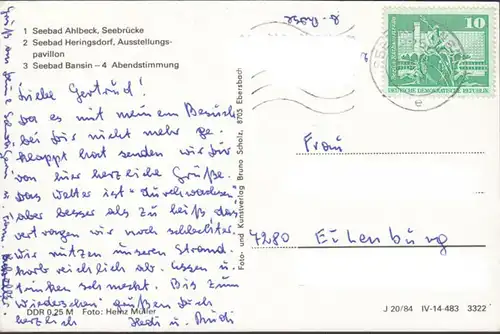 1 Seebad Ahlbeck, Seebrücke
2 Seebad Heringsdorf, Ausstellungs-
pavillon
3 Seebad Bansin — 4 Abendstimmung
Liebe Gertrud!
Da es mit meinem Besuch
bei Dir nicht mehr ge-
klappt hat senden wir Dir
von hier herzliche Grüße.
Das Wetter ist "durchwachsen"
aber besser als zu heiß das
vertragen wir noch schlechter.
Wir nutzen unseren Strand-
korb reichlich ab. Essen u.
trinken schmeckt. Bis zum
Wiedersehen grüßen Dich
herzlich Hedi u. Rudi
DDR 0,25 M Foto: Heinz Müller
Foto- und Kunstverlag Bruno Scholz, 8705 Ebersbach
10
DEUTSCHE DEMOKRATISCHE REPUBLIK
e
Frau
7280 Eilenburg
J 20/84 IV-14-483 3322